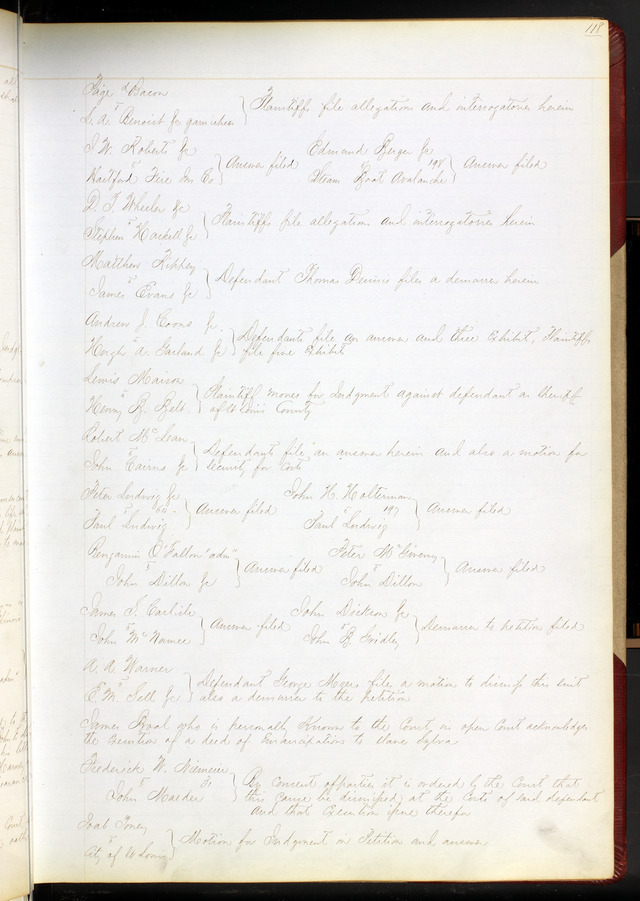 118
Page & Bacon
vs
L. A. Benoist Jr garnishee } Plaintiffs file allegations and interrogatories herein
J W. Roberts Jr
vs
Hartford Fire Ins Co } Answer filed
Edmund Burger Jr
vs 198
Steam Boat Avalanche } Answer filed
D. T Wheeler Jr
vs
Stephen Haskell Jr } Plaintiffs file allegations and interrogatories herein
Matthew Rippey
vs
James Evans Jr } Defendant Thomas Dennis files a demurrer herein
Andrew J. Coons Jr.
vs
Hugh A. Garland Jr } Defendants file an answer and three Exhibits, Plaintiffs
file five Exhibits
Lewis Mairon
vs
Henry B. Belt } Plaintiff moves for Judgment against defendant as sheriff
of St Louis County
Robert McLean
vs
John Cairns Jr } Defendants file an answer herein and also a motion for
security for Costs
Peter Ludwig Jr
vs 60
Paul Ludwig } Answer filed
John H. Holterman
vs 197
Paul Ludwig } Answer filed
Benjamin O'Fallon "adm"
vs
John Dillon Jr } Answer filed
Peter McGivney
vs
John Dillon } Answer filed
James T. Carlisle
vs
John McNamee } Answer filed
John Dickson Jr
vs
John B Gridley } Demurrer to Petition filed
A. A. Warner
vs
E. M. Sell Jr } Defendant George Myers files a motion to dismiss this suit
also a demurrer to the petition
James Bral who is personally Known to the Court in open Court acknowledges
the execution of a deed of Emancipation to Jane Sylva
Frederick W. Niemeier
vs 31
John Maeder } By consent of parties it is ordered by the Court that
this cause be dismissed at the Costs of said defendant
and that Execution issue therefor
Joab Toney
vs
City of St Louis } Motion for Judgment on Petition and answer